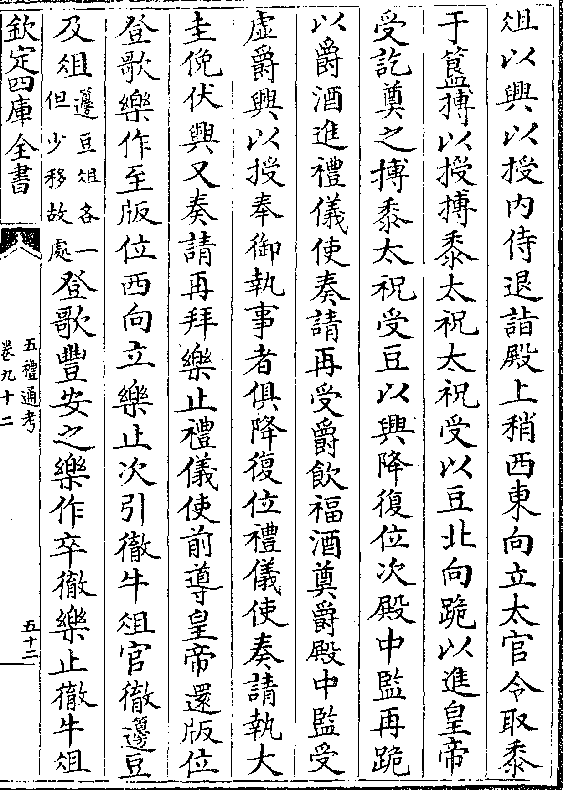 俎以興以授内侍退詣殿上稍西東向立太官令取黍
于簋摶以授摶黍太祝太祝受以豆北向跪以進皇帝
受訖奠之摶黍太祝受豆以興降復位次殿中監再跪
以爵酒進禮儀使奏請再受爵飲福酒奠爵殿中監受
虛爵興以授奉御執事者俱降復位禮儀使奏請執大
圭俛伏興又奏請再拜樂止禮儀使前導皇帝還版位
登歌樂作至版位西向立樂止次引徹牛俎官徹籩豆
及俎籩豆俎各一但少移故處登歌豐安之樂作卒徹樂止徹牛俎
欽定四庫全書
五禮通考
卷九十二
五十二